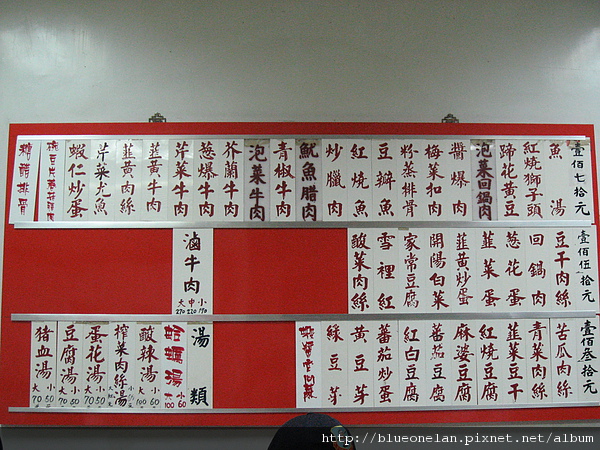 壹佰七十元
魚湯
紅燒獅子頭
蹄花黃豆
泡菜回鍋肉
醬爆肉
梅菜扣肉
粉蒸排骨
豆瓣魚
紅燒魚
炒臘肉
魷魚腊肉
青椒牛肉
泡菜牛肉
芥蘭牛肉
葱爆牛肉
芹菜牛肉
韮黃牛肉
韮黃肉絲
芹菜尤魚
蝦仁炒蛋
糖醋排骨
壹佰伍拾元
豆干肉絲
回鍋肉
葱花蛋
韮菜蛋
韮黃炒蛋
開陽白菜
家常豆腐
雪裡紅
酸菜肉絲
滷牛肉
大中小
270 220 170
壹佰叁拾元
苦瓜肉絲
青菜肉絲
韮菜豆干
紅燒豆腐
麻婆豆腐
蕃茄豆腐
紅白豆腐
蕃茄炒蛋
黃豆芽
綠豆芽
湯類
蛤蠣湯 大100 小60
酸辣湯 大100 小60
榨菜肉絲湯
蛋花湯 大70 小50
豆腐湯 大70 小50
豬血湯 大70 小50
http://blueonelan.pixnet.net/album